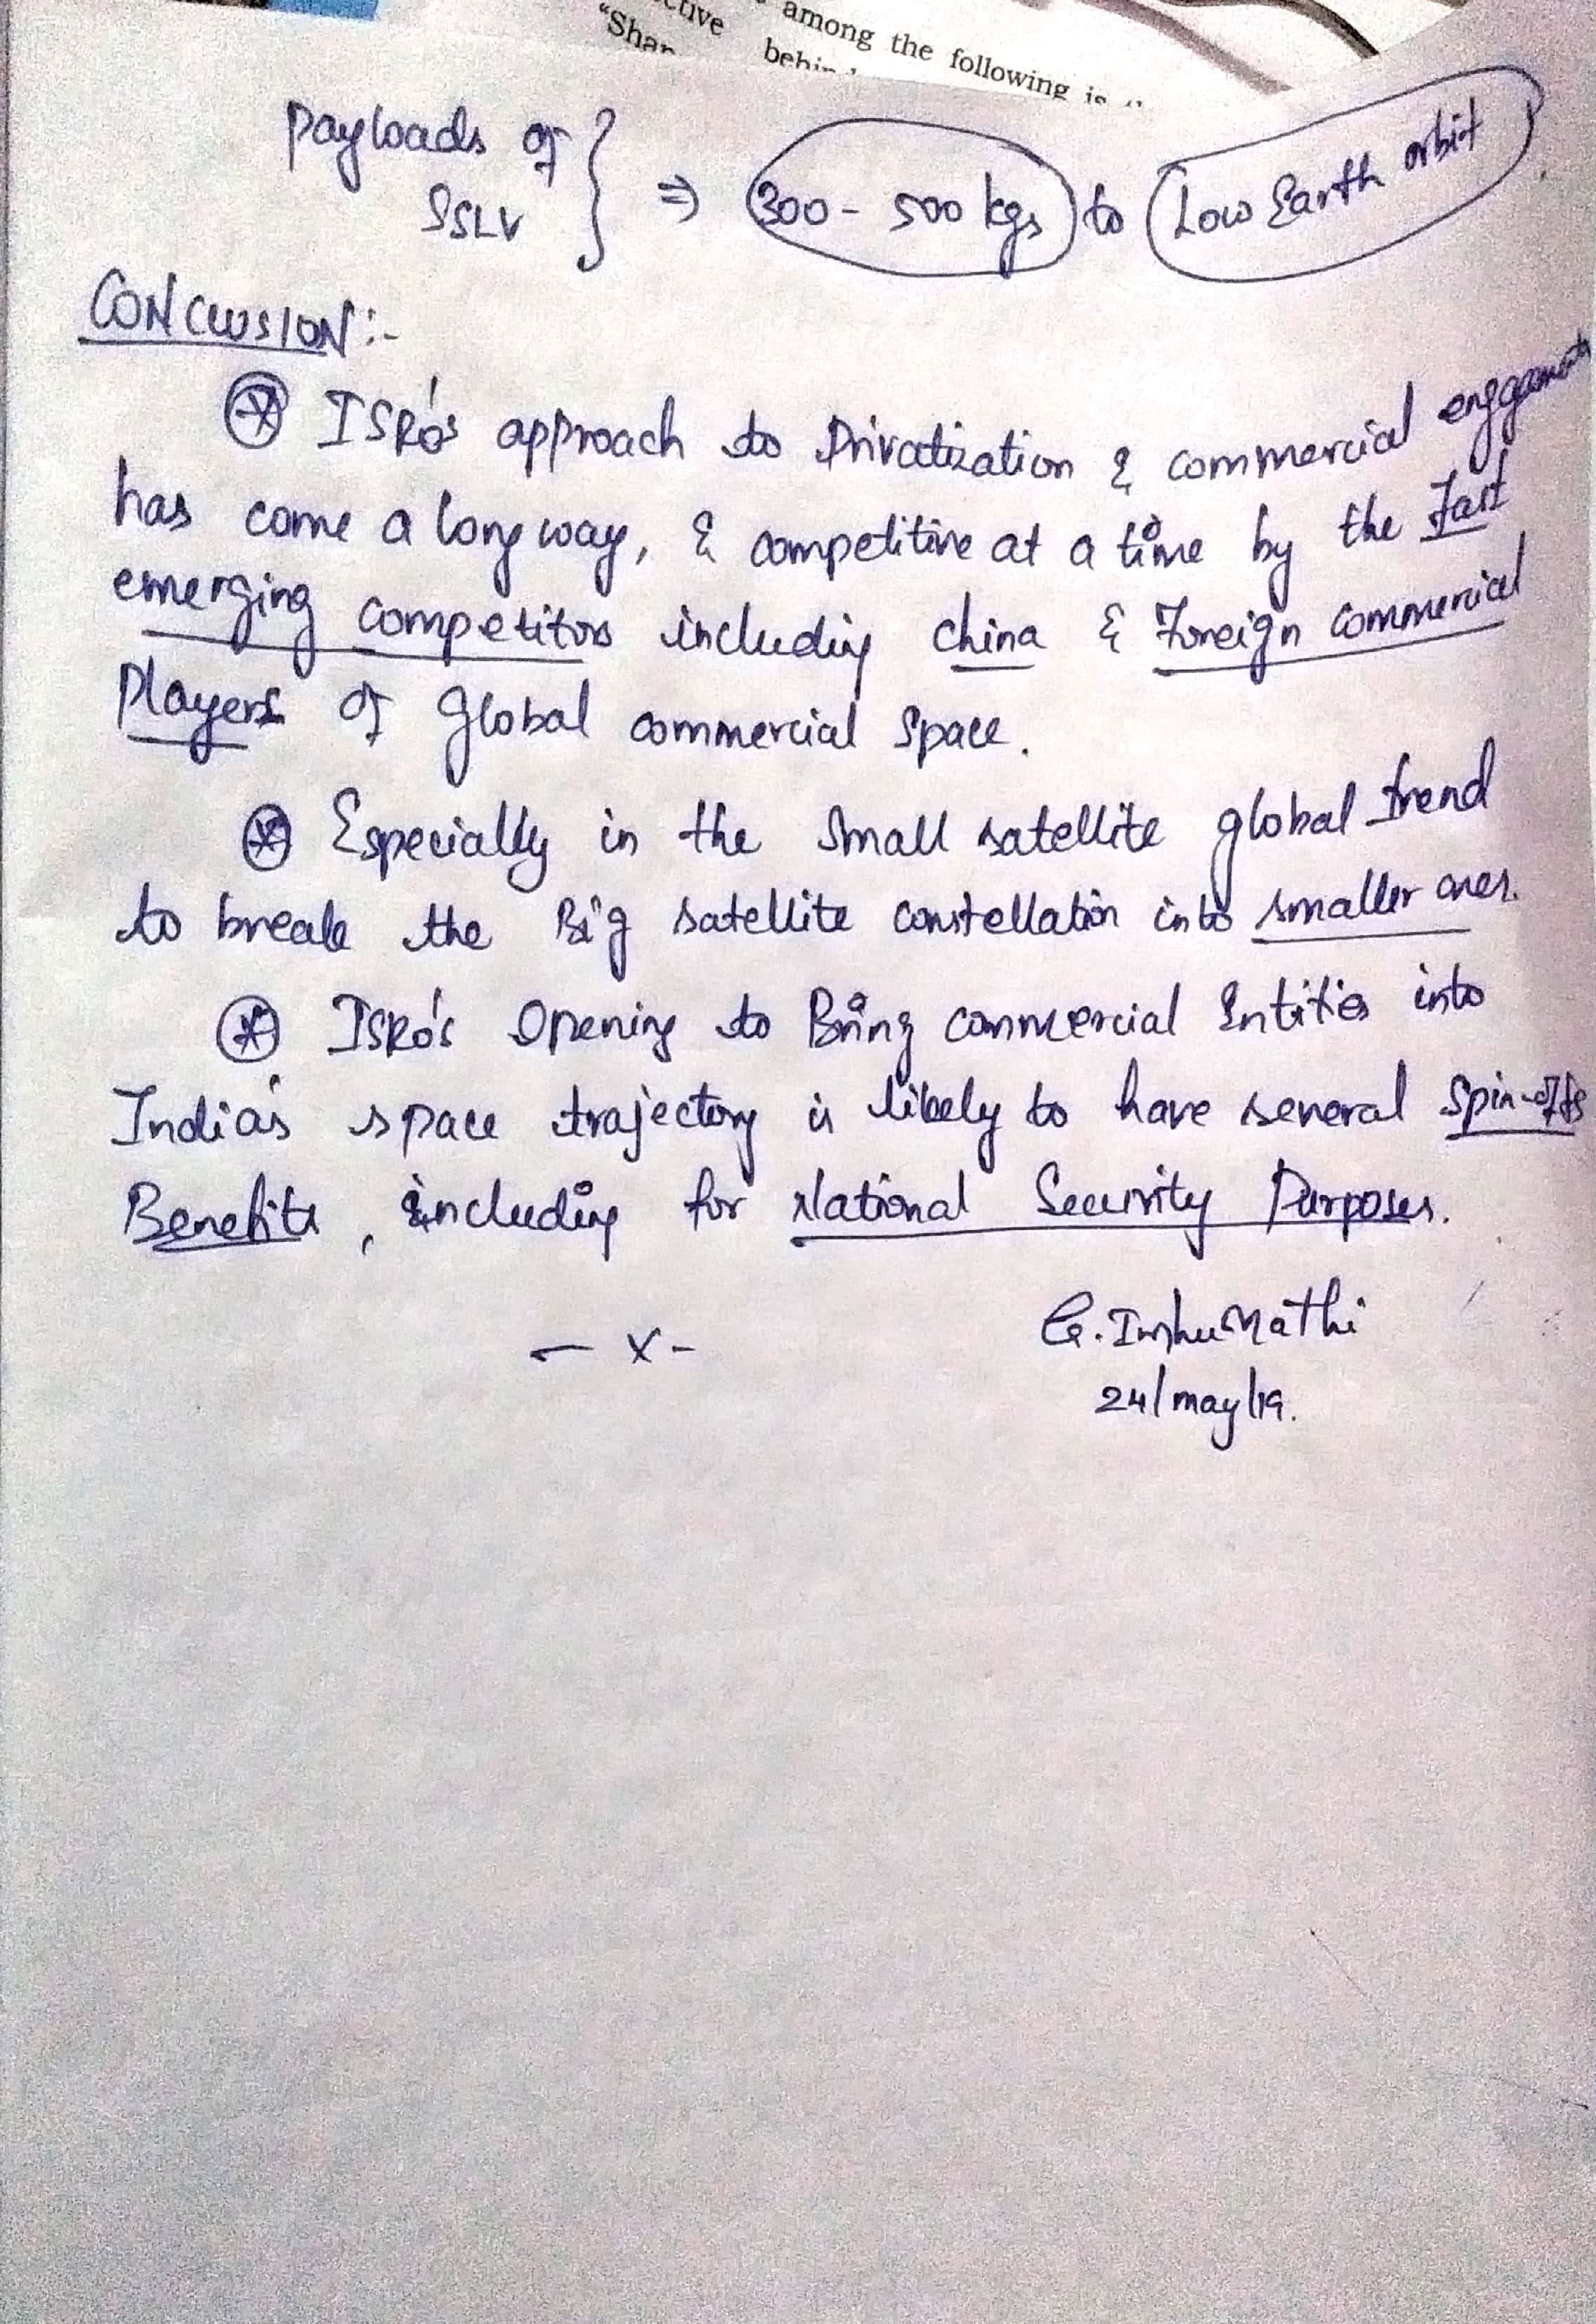 among the following is
"Shan
Payloads of
SSLV } ⇒ 300 - 500 kgs to Low Earth orbit
CONCLUSION:-
ISRO's approach to Privatization & commercial
has come a long way, & competitive at a time by the fast
emerging competitors including China & Foreign commercial
Players of Global commercial space.
Especially in the small satellite global trend
to break the Big satellite constellation into smaller ones.
ISRO's Opening to Bring commercial Entities into
India's space trajectory is likely to have several spin-offs
Benefits, including for National Security Purposes.
- x -
24/may/19.